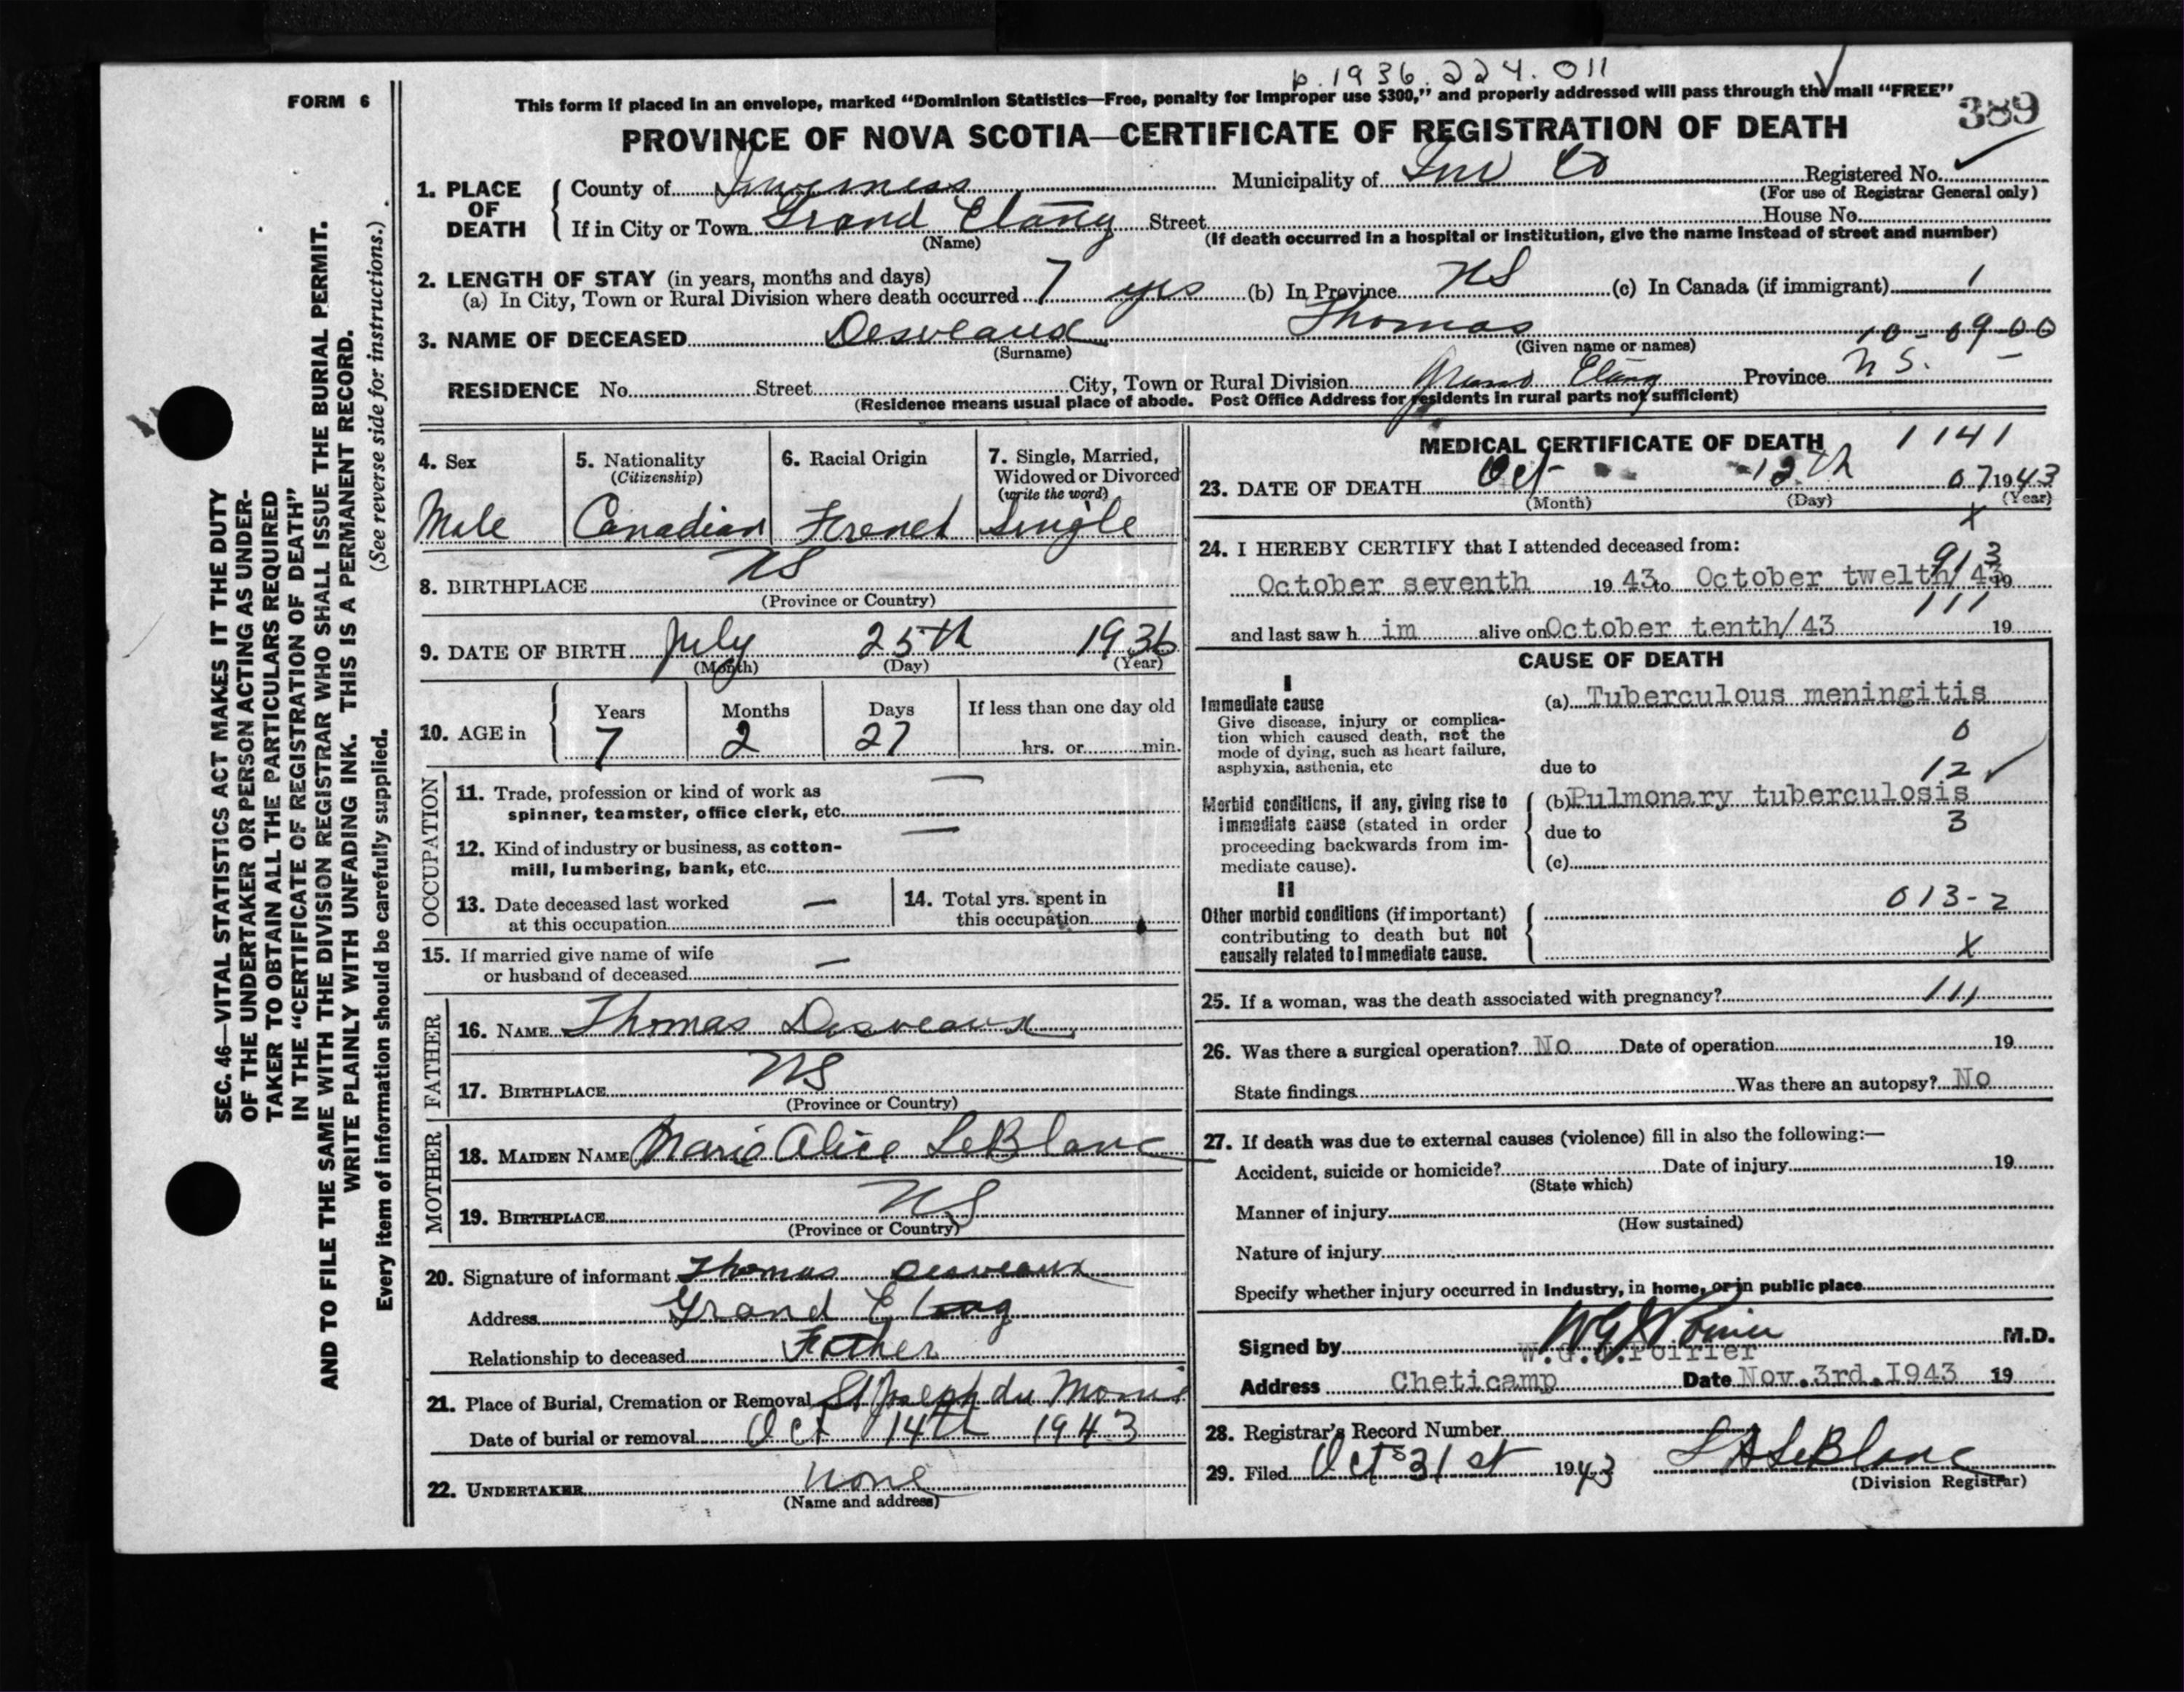 p. 1936. 224. 011
FORM 6
This form if placed in an envelope, marked “Dominion Statistics—Free, penalty for improper use $300,” and properly addressed will pass through the mail “FREE”
389
PROVINCE OF NOVA SCOTIA—CERTIFICATE OF REGISTRATION OF DEATH
1. PLACE OF DEATH
County of Inverness Municipality of Inv Co Registered No.
(For use of Registrar General only)
If in City or Town Grand Etang Street House No.
(Name) (If death occurred in a hospital or institution, give the name instead of street and number)
2. LENGTH OF STAY (in years, months and days)
(a) In City, Town or Rural Division where death occurred 7 yrs (b) In Province NS (c) In Canada (if immigrant) 1
3. NAME OF DECEASED Desveaux Thomas 10-09-00
(Surname) (Given name or names)
RESIDENCE No. Street City, Town or Rural Division Grand Etang Province N S. —
(Residence means usual place of abode. Post Office Address for residents in rural parts not sufficient)
4. Sex
Male
5. Nationality
(Citizenship)
Canadian
6. Racial Origin
French
7. Single, Married,
Widowed or Divorced
(write the word)
Single
8. BIRTHPLACE NS
(Province or Country)
9. DATE OF BIRTH July 25th 1936
(Month) (Day) (Year)
10. AGE in
Years Months Days If less than one day old
7 2 27 hrs. or min.
OCCUPATION
11. Trade, profession or kind of work as
spinner, teamster, office clerk, etc. —
12. Kind of industry or business, as cotton-
mill, lumbering, bank, etc. —
13. Date deceased last worked
at this occupation —
14. Total yrs. spent in
this occupation
15. If married give name of wife
or husband of deceased —
FATHER
16. NAME Thomas Desveaux
17. BIRTHPLACE NS
(Province or Country)
MOTHER
18. MAIDEN NAME Marie Alice LeBlanc
19. BIRTHPLACE NS
(Province or Country)
20. Signature of informant Thomas Desveaux
Address Grand Etang
Relationship to deceased Father
21. Place of Burial, Cremation or Removal St Joseph du Moine
Date of burial or removal Oct 14th 1943
22. UNDERTAKER none
(Name and address)
MEDICAL CERTIFICATE OF DEATH 1141
23. DATE OF DEATH Oct 12th 07 1943
(Month) (Day) (Year)
X
24. I HEREBY CERTIFY that I attended deceased from:
913
October seventh 19 43 to October twelth/43 19
111
and last saw h im alive on October tenth/43 19
CAUSE OF DEATH
I
Immediate cause
Give disease, injury or complica-
tion which caused death, not the
mode of dying, such as heart failure,
asphyxia, asthenia, etc
(a) Tuberculous meningitis
0
due to
12 ✓
Morbid conditions, if any, giving rise to
immediate cause (stated in order
proceeding backwards from im-
mediate cause).
(b) Pulmonary tuberculosis
due to 3
(c)
II
Other morbid conditions (if important)
contributing to death but not
causally related to immediate cause.
013-2
X
25. If a woman, was the death associated with pregnancy? 111
26. Was there a surgical operation? No Date of operation 19
State findings Was there an autopsy? No
27. If death was due to external causes (violence) fill in also the following:—
Accident, suicide or homicide? Date of injury 19
(State which)
Manner of injury
(How sustained)
Nature of injury
Specify whether injury occurred in industry, in home, or in public place
Signed by W G J Poirier M.D.
W.G.J.Poirier
Address Cheticamp Date Nov.3rd.1943 19
28. Registrar's Record Number
29. Filed Oct 31st 1943 L A LeBlanc
(Division Registrar)
SEC. 46—VITAL STATISTICS ACT MAKES IT THE DUTY
OF THE UNDERTAKER OR PERSON ACTING AS UNDER-
TAKER TO OBTAIN ALL THE PARTICULARS REQUIRED
IN THE “CERTIFICATE OF REGISTRATION OF DEATH”
AND TO FILE THE SAME WITH THE DIVISION REGISTRAR WHO SHALL ISSUE THE BURIAL PERMIT.
WRITE PLAINLY WITH UNFADING INK. THIS IS A PERMANENT RECORD.
Every item of information should be carefully supplied. (See reverse side for instructions.)